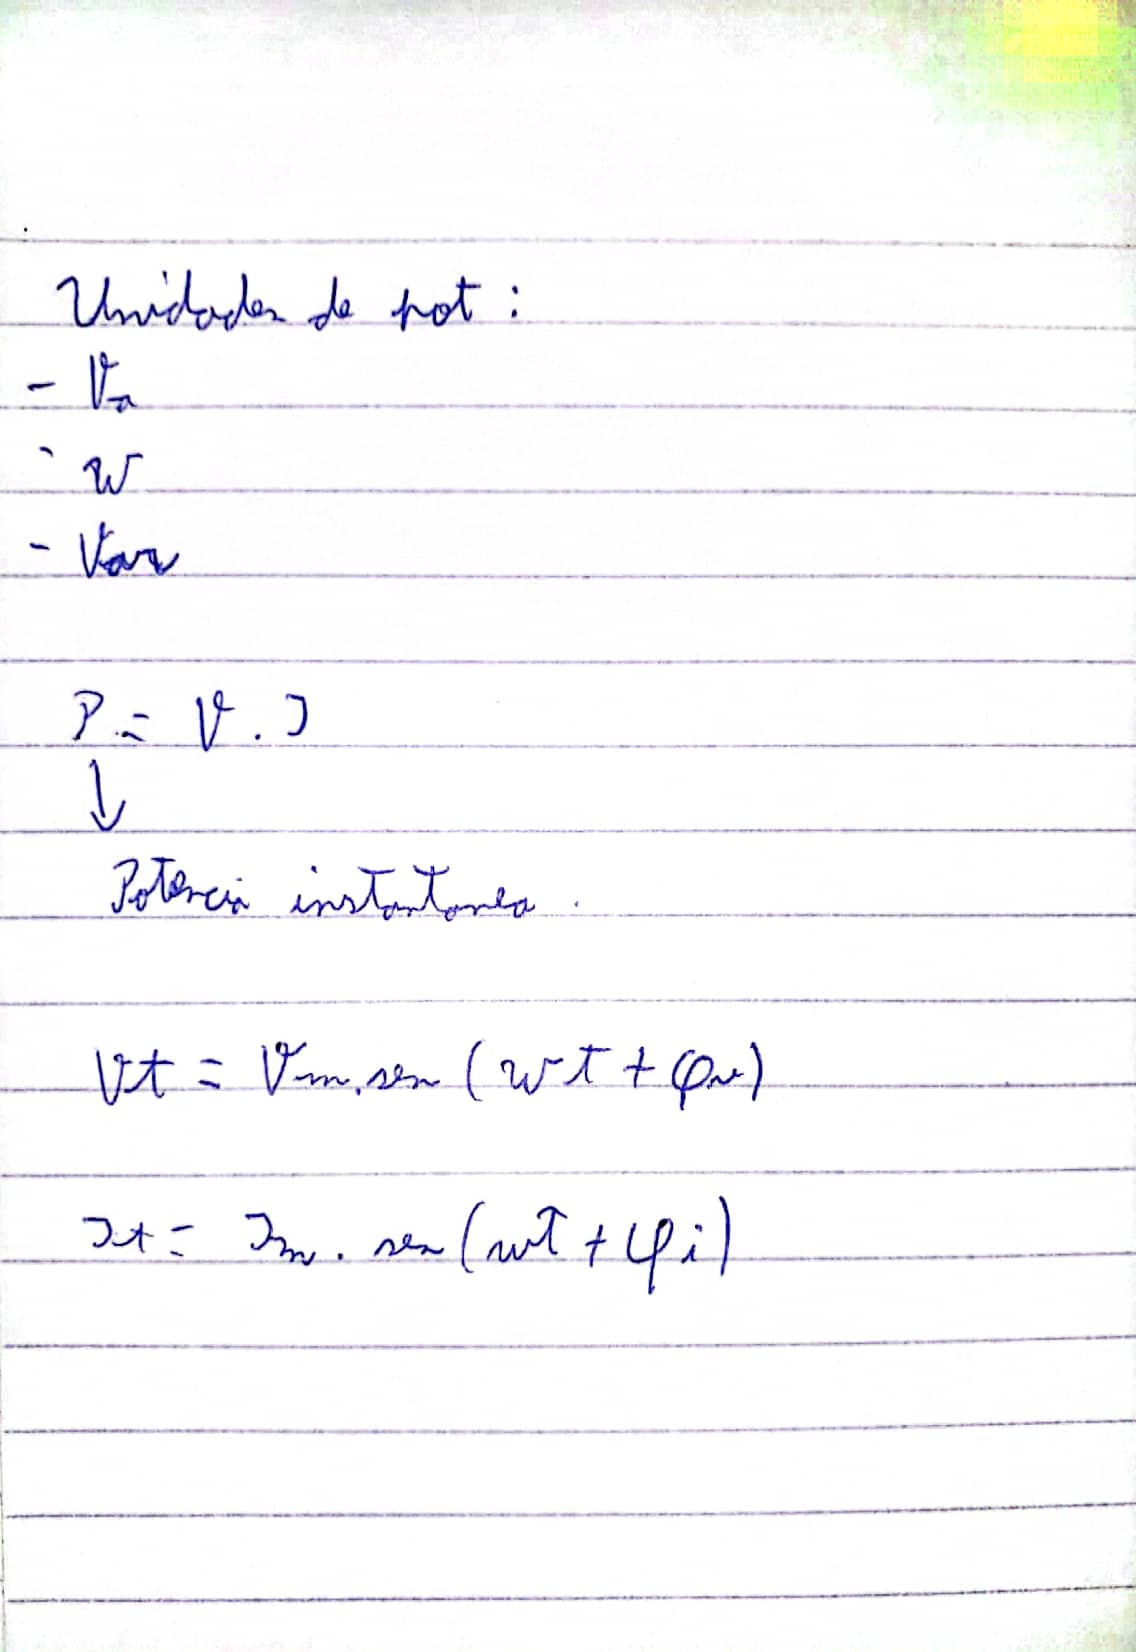 Unidades de pot :
- Va
- W
- Var
P = V . I
↓
Potencia instantanea .
Vt = Vm . sen ( wt + φv )
It = Im . sen ( wt + φi )